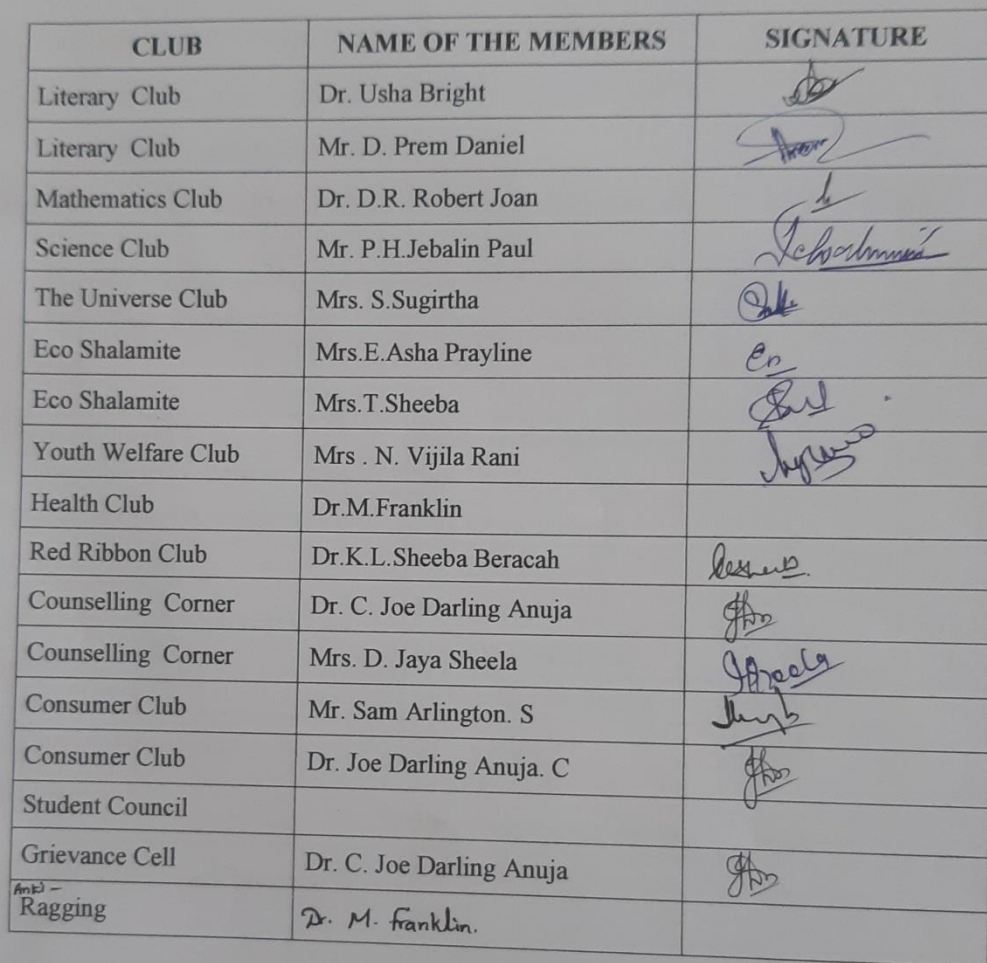 CLUB NAME OF THE MEMBERS SIGNATURE
Literary Club Dr. Usha Bright
Literary Club Mr. D. Prem Daniel
Mathematics Club Dr. D.R. Robert Joan
Science Club Mr. P.H.Jebalin Paul
The Universe Club Mrs. S.Sugirtha
Eco Shalamite Mrs.E.Asha Prayline
Eco Shalamite Mrs.T.Sheeba
Youth Welfare Club Mrs . N. Vijila Rani
Health Club Dr.M.Franklin
Red Ribbon Club Dr.K.L.Sheeba Beracah
Counselling Corner Dr. C. Joe Darling Anuja
Counselling Corner Mrs. D. Jaya Sheela
Consumer Club Mr. Sam Arlington. S
Consumer Club Dr. Joe Darling Anuja. C
Student Council
Grievance Cell Dr. C. Joe Darling Anuja
Anti -
Ragging Dr. M. Franklin.